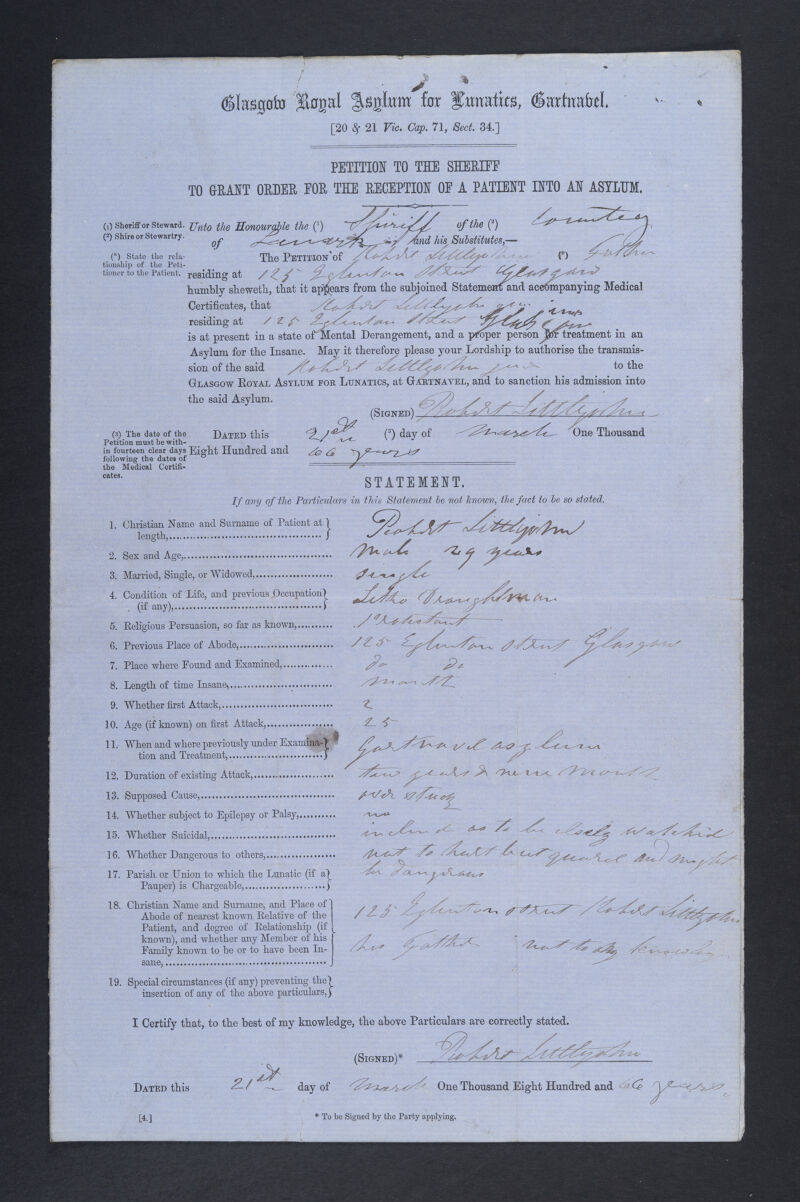 Glasgow Royal Asylum for Lunatics, Gartnavel.
[20 & 21 Vic. Cap. 71, Sect. 34.]
PETITION TO THE SHERIFF
TO GRANT ORDER FOR THE RECEPTION OF A PATIENT INTO AN ASYLUM.
(1) Sheriff or Steward.
(2) Shire or Stewartry.
(*) State the relationship of the Petitioner to the Patient.
Unto the Honourable the (1) Sheriff of the (2) County
of Lanark and his Substitutes,—
The PETITION of Robert Littlejohn (*) Father
residing at 125 Eglinton Street Glasgow
humbly sheweth, that it appears from the subjoined Statement and accompanying Medical
Certificates, that Robert Littlejohn
residing at 125 Eglinton Street Glasgow
is at present in a state of Mental Derangement, and a proper person for treatment in an
Asylum for the Insane. May it therefore please your Lordship to authorise the transmis-
sion of the said Robert Littlejohn to the
GLASGOW ROYAL ASYLUM FOR LUNATICS, AT GARTNAVEL, and to sanction his admission into
the said Asylum.
(SIGNED) Robert Littlejohn
(3) The date of the
Petition must be with-
in fourteen clear days
following the dates of
the Medical Certifi-
cates.
DATED this 21st (3) day of March One Thousand
Eight Hundred and 66 years
STATEMENT.
If any of the Particulars in this Statement be not known, the fact to be so stated.
1. Christian Name and Surname of Patient at
length, Robert Littlejohn
2. Sex and Age, Male 29 years
3. Married, Single, or Widowed, single
4. Condition of Life, and previous Occupation
(if any), Litho Draughtman
5. Religious Persuasion, so far as known, Protestant
6. Previous Place of Abode, 125 Eglinton Street Glasgow
7. Place where Found and Examined, do do
8. Length of time Insane, month
9. Whether first Attack, 2
10. Age (if known) on first Attack, 25
11. When and where previously under Examina-
tion and Treatment, Gartnavel asylum
12. Duration of existing Attack, two years & nine Month
13. Supposed Cause, over study
14. Whether subject to Epilepsy or Palsy, no
15. Whether Suicidal, as to be closely watched
16. Whether Dangerous to others, not to hurt but quarel and might
17. Parish or Union to which the Lunatic (if a
Pauper) is Chargeable, be dangrous
18. Christian Name and Surname, and Place of
Abode of nearest known Relative of the
Patient, and degree of Relationship (if
known), and whether any Member of his
Family known to be or to have been In-
sane,
125 Eglinton Street Robert Littlejohn
his Father not to my
19. Special circumstances (if any) preventing the
insertion of any of the above particulars,
I Certify that, to the best of my knowledge, the above Particulars are correctly stated.
(SIGNED)* Robert Littlejohn
DATED this 21st day of March One Thousand Eight Hundred and 66 years.
[4.]
* To be Signed by the Party applying.